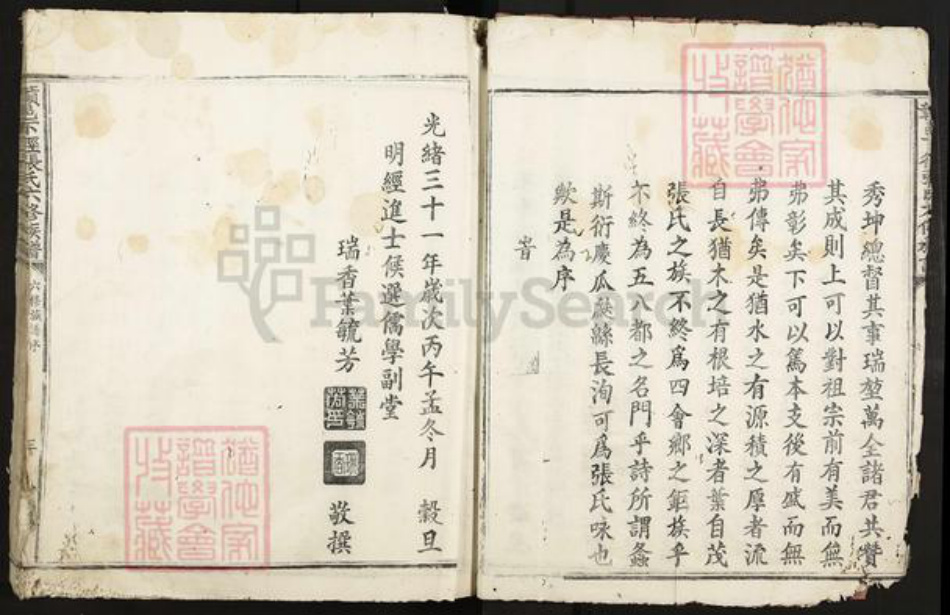 秀坤總督其事瑞堃萬全諸君共贊
其成則上可以對祖宗前有美而無
弗彰矣下可以篤本支後有盛而無
弗傳矣是猶水之有源積之厚者流
自長猶木之有根培之深者葉自茂
張氏之族不終爲四會鄉之鉅族乎
不終為五八都之名門乎詩所謂螽
斯衍慶瓜瓞緜長洵可爲張氏咏也
歟是為序
旹
光緒三十一年歲次丙午孟冬月 穀旦
明經進士候選儒學副堂
瑞香葉毓芳 敬撰
張氏六修族譜
六修族譜序
三
猶他家
譜學會
收藏
猶他家
譜學會
收藏
FamilySearch